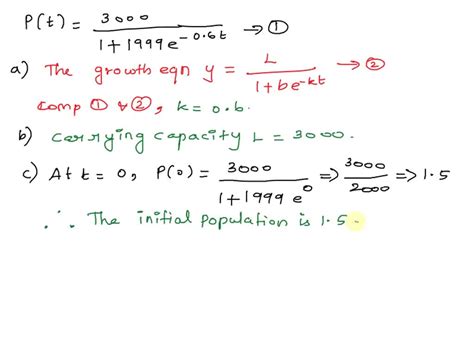 P(t) = 3000 / 1 + 1999 e^-0.6t → ①
a) The growth eqn y = L / 1 + be^-kt → ②
comp ① & ②, k = 0.6.
b) carrying capacity L = 3000.
c) At t = 0, P(0) = 3000 / 1 + 1999 e^0 ⇒ 3000 / 2000 ⇒ 1.5
∴ The initial population is 1.5